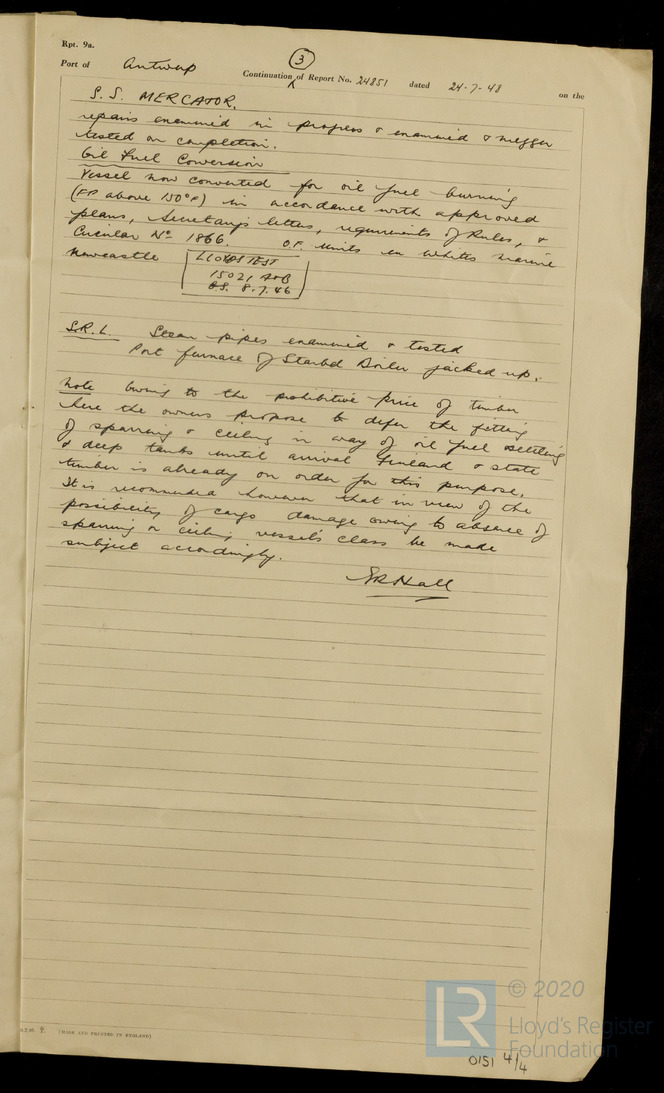 Rpt. 9a.
3
Port of Antwerp Continuation of Report No. 24851 dated 24.7.48 on the
S.S. MERCATOR.
repairs examined in progress & examined & megger
tested on completion.
Oil Fuel Conversion
Vessel now converted for oil fuel burning
(FP above 150°F) in accordance with approved
plans, Secretary's letters, requirements of Rules, &
Circular No 1866. O.F. units ex Whites Marine
Newcastle LLOYDS TEST
15021
8.7.46
S.R.L. Steam pipes examined & tested
Port furnace of Starbd Boiler jacked up.
Note Owing to the prohibitive price of timber
here the owners propose to defer the fitting
of sparring & ceiling in way of oil fuel settling
& deep tanks until arrival Finland & state
timber is already on order for this purpose.
It is recommended however that in view of the
possibility of cargo damage owing to absence of
sparring or ceiling vessel's class be made
subject accordingly.
Hall
(MADE AND PRINTED IN ENGLAND)
LR
© 2020
Lloyd's Register
Foundation
0151 4/4